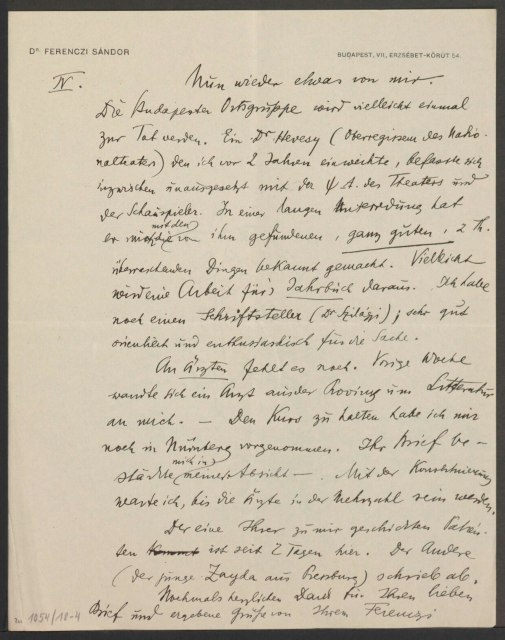 Dr. FERENCZI SÁNDOR
BUDAPEST, VII, ERZSÉBET-KÖRÚT 54.
IV. Nun wieder etwas von mir.
Die Budapester Ortsgruppe wird vielleicht einmal
zur Tat werden. Ein Dr Hevesy (Oberregisseur des Natio-
naltheaters) den ich vor 2 Jahren einweihte, befasste sich
inzwischen unausgesetzt mit der ψ A. des Theaters und
der Schauspieler. In einer langen Unterredung hat
er mich mit den von ihm gefundenen, ganz guten, z. Th.
überraschenden Dingen bekannt gemacht. Vielleicht
wird eine Arbeit für's Jahrbuch daraus. Ich habe
noch einen Schriftsteller (Dr Szilágyi); sehr gut
orientiert und enthusiastisch für die Sache.
An Ärzten fehlt es noch. Vorige Woche
wandte sich ein Arzt aus der Provinz um Litteratur
an mich. — Den Kurs zu halten habe ich mir
noch in Nürnberg vorgenommen. Ihr Brief be-
stärkte mich in meiner Absicht —. Mit der Konstituierung
warte ich, bis die Ärzte in der Mehrzahl sein werden.
Der eine Ihrer zu mir geschickten Patien-
ten ist seit 2 Tagen hier. Der Andere
(der junge Zayda aus Pressburg) schrieb ab.
Nochmals herzlichen Dank für Ihren lieben
Brief und ergebene Grüße von Ihrem Ferenczi
1054/18-4